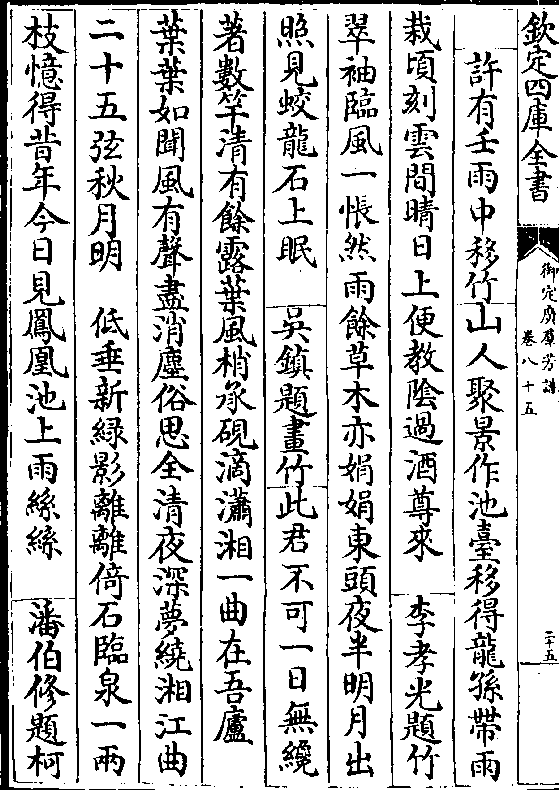 欽定四庫全書
御定廣羣芳譜
卷八十五
二十五
許有壬雨中移竹山人聚景作池臺移得龍孫帶雨
栽頃刻雲間晴日上便教陰過酒尊來 李孝光題竹
翠袖臨風一悵然雨餘草木亦娟娟東頭夜半明月出
照見蛟龍石上眠 吳鎮題畫竹此君不可一日無纔
著數竿清有餘露葉風梢承硯滴瀟湘一曲在吾廬
葉葉如聞風有聲盡消塵俗思全清夜深夢繞湘江曲
二十五弦秋月明 低垂新綠影離離倚石臨泉一兩
枝憶得昔年今日見鳳凰池上雨絲絲 潘伯修題柯